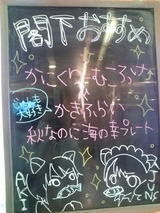 閣下おすすめ
かにくりーむころっけ
かきふらい
秋なのに海の幸プレート
AKI